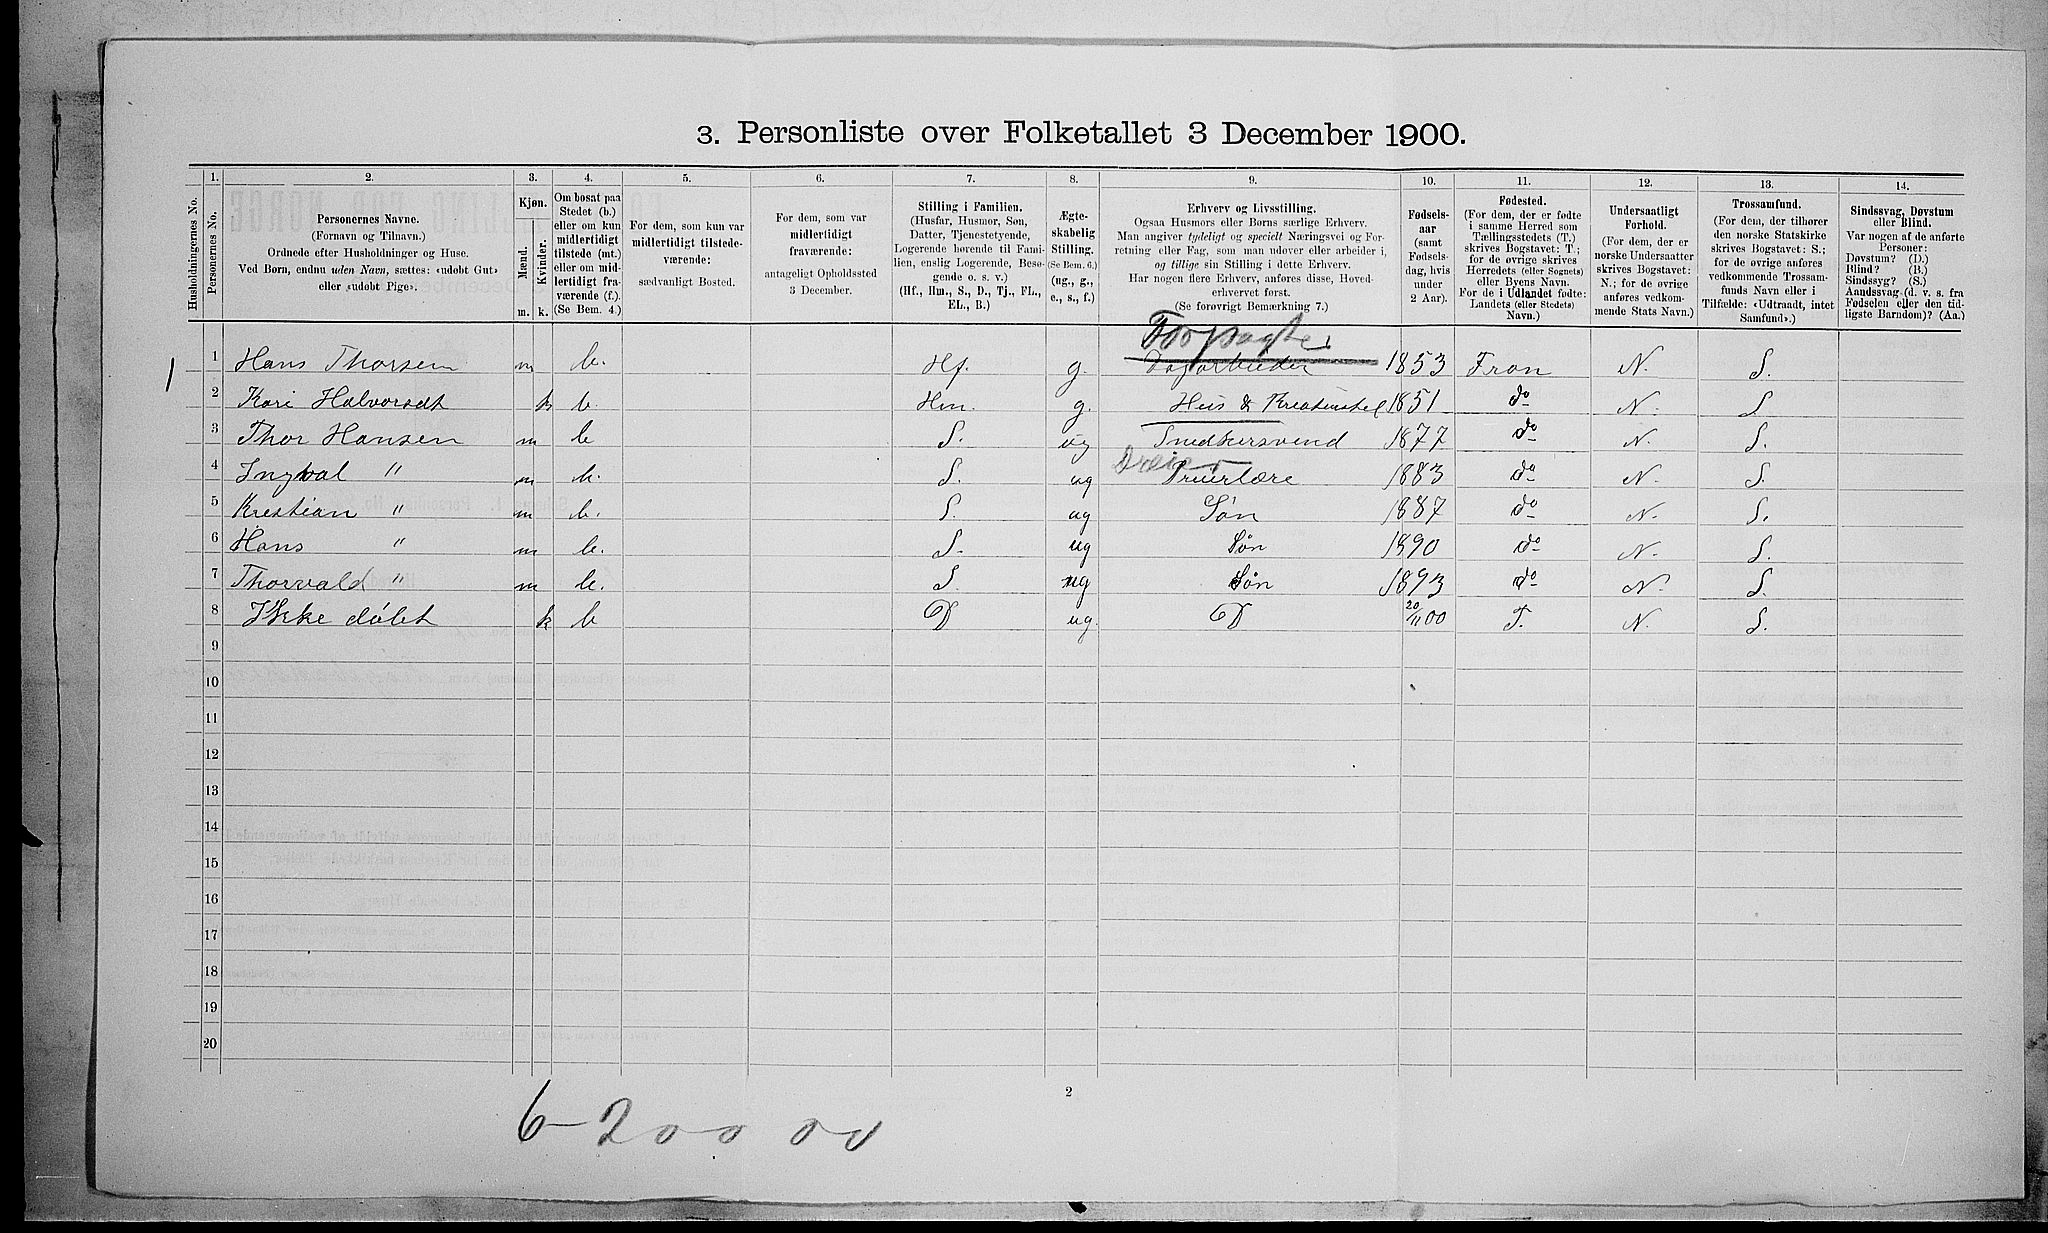 3. Personliste over Folketallet 3 December 1900.
1. 2. 3. 4. 5. 6. 7. 8. 9. 10. 11. 12. 13. 14.
Husholdningernes No.
Personernes No.
Personernes Navne.
(Fornavn og Tilnavn.)
Ordnede efter Husholdninger og Huse.
Ved Børn, endnu uden Navn, sættes: «udøbt Gut»
eller «udøbt Pige».
Kjøn.
Mænd.
Kvinder.
m. k.
Om bosat paa
Stedet (b.)
eller om kun
midlertidigt
tilstede (mt.)
eller om mid-
lertidigt fra-
værende (f.).
(Se Bem. 4.)
For dem, som kun var
midlertidigt tilstede-
værende:
sædvanligt Bosted.
For dem, som var
midlertidigt
fraværende:
antageligt Opholdssted
3 December.
Stilling i Familien.
(Husfar, Husmor, Søn,
Datter, Tjenestetyende,
Logerende hørende til Fami-
lien, enslig Logerende, Besø-
gende o. s. v.)
(Hf., Hm., S., D., Tj., FL.,
EL., B.)
Ægte-
skabelig
Stilling.
(Se Bem. 6.)
(ug., g.,
e., s., f.)
Erhverv og Livsstilling.
Ogsaa Husmors eller Børns særlige Erhverv.
Man angiver tydeligt og specielt Næringsvei og For-
retning eller Fag, som man udøver eller arbeider i,
og tillige sin Stilling i dette Erhverv.
Har nogen flere Erhverv, anføres disse, Hoved-
erhvervet først.
(Se forøvrigt Bemærkning 7.)
Fødsels-
aar
(samt
Fødsels-
dag, hvis
under
2 Aar).
Fødested.
(For dem, der er fødte
i samme Herred som
Tællingsstedets (T.)
skrives Bogstavet: T.;
for de øvrige skrives
Herredets (eller Sognets)
eller Byens Navn.
For de i Udlandet fødte:
Landets (eller Stedets)
Navn.)
Undersaatligt
Forhold.
(For dem, der er
norske Undersaatter
skrives Bogstavet:
N.; for de øvrige
anføres vedkom-
mende Stats Navn.)
Trossamfund.
(For dem, der tilhører
den norske Statskirke
skrives Bogstavet: S.;
for de øvrige anføres
vedkommende Trossam-
funds Navn eller i
Tilfælde: «Udtraadt, intet
Samfund».)
Sindssvag, Døvstum
eller Blind.
Var nogen af de anførte
Personer:
Døvstum? (D.)
Blind? (B.)
Sindssyg? (S.)
Aandssvag (d. v. s. fra
Fødselen eller den tid-
ligste Barndom)? (Aa.)
Forpagter
1 1 Hans Thorsen m b. Hf. g. Dagarbeider 1853 Fron N. S.
2 Kari Halvorsdt k b. Hm. g. Hus & Kreaturstel 1851 do N. S
3 Thor Hansen m b S. ug Snedkersvend 1877 do N. S.
Dreier
4 Ingval " m b. S. ug 1883 do N. S.
5 Krestian " m b. S. ug Søn 1887 do N. S.
6 Hans " m b. S. ug Søn 1890 do N. S.
7 Thorvald " m b. S. ug Søn 1893 do N. S.
8 Ikke døbt k b D ug. D 20/11 00 T. N. S.
9
10
11
12
13
14
15
16
17
18
19
20
2
6-200 00